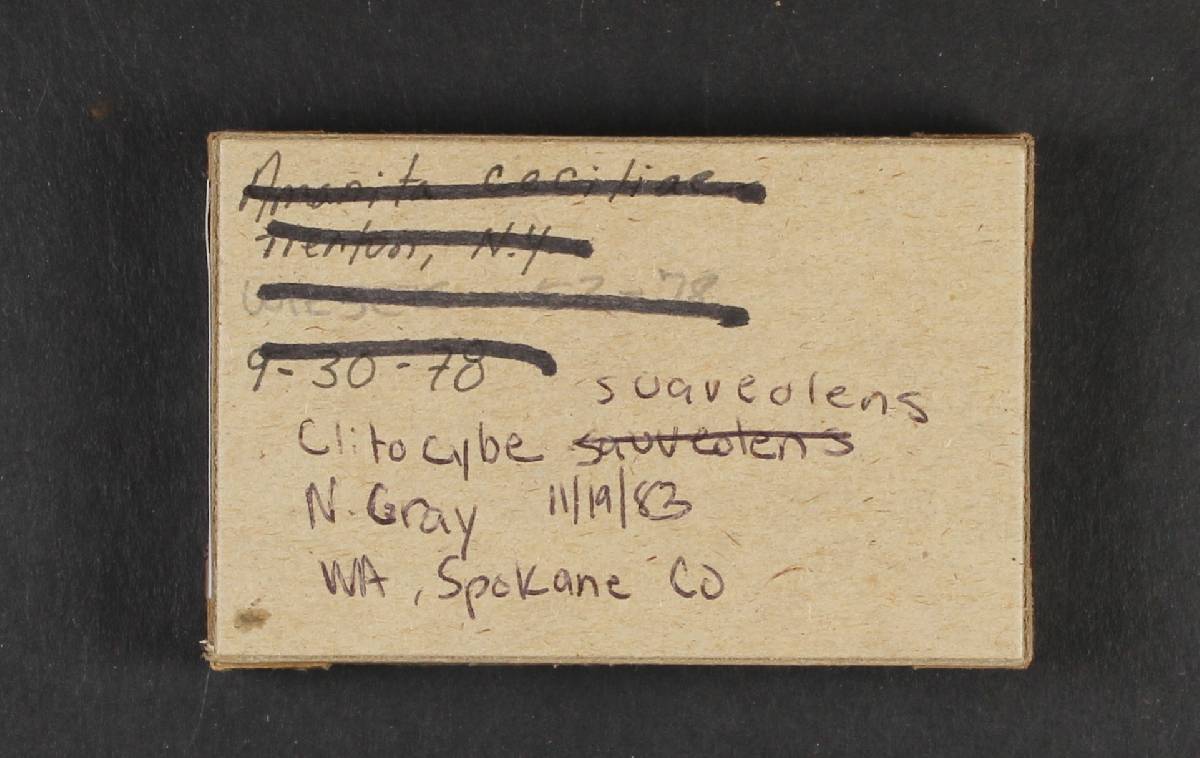 Amanita ceciliae
Trenton, N.Y
52-78
9-30-78
suaveolens
Clitocybe sauveolens
N. Gray 11/19/83
WA, Spokane Co